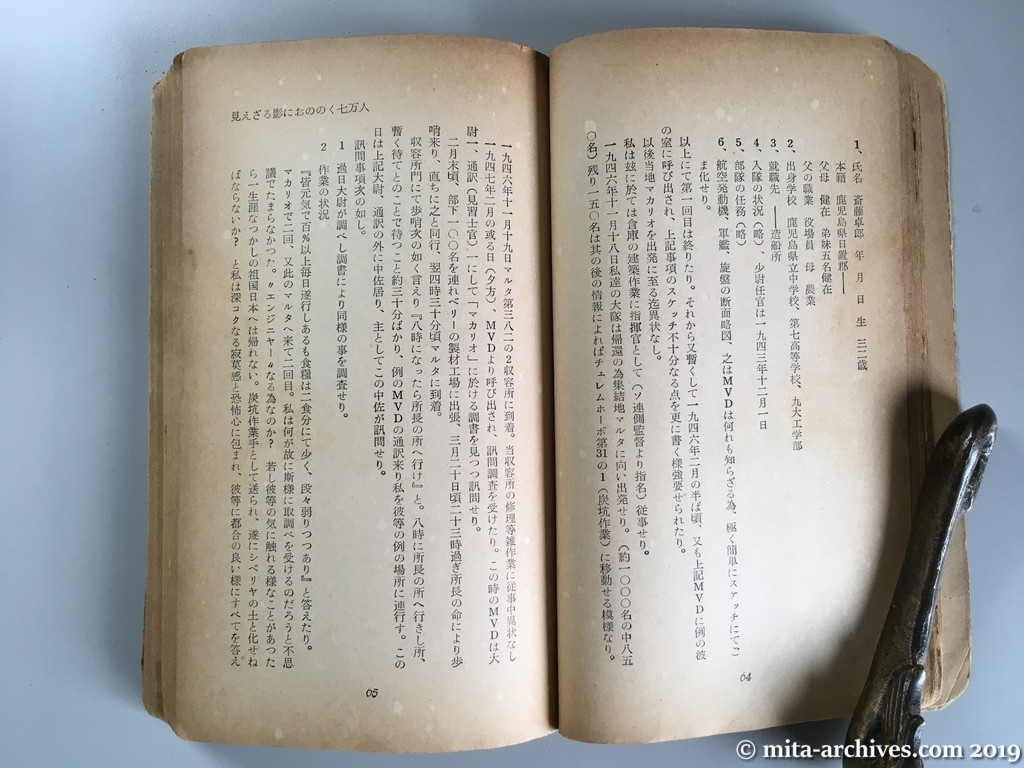 1、氏名 斎藤卓郎 年 月 日 生 三二歳
本籍 鹿児島県日置郡――
父母 健在 弟妹五名健在
父の職業 役場員 母 農業
2、出身学校 鹿児島県立中学校、第七高等学校、九大工学部
3、就職先 ――造船所
4、入隊の状況(略)、少尉任官は一九四三年十二月一日
5、部隊の任務(略)
6、航空発動機、軍艦、旋盤の断面略図、之はMVDは何れも知らざる為、極く簡単にスケッチにてご
ま化せり。
以上にて第一回目は終りたり。それから又暫くして一九四六年二月の半ば頃、又も上記MVDに例の彼
の室に呼び出され、上記事項のスケッチ不十分なる点を更に書く様強要せられたり。
以後当地マカリオを出発に至る迄異状なし。
私は玆に於ては倉庫の建築作業に指揮官として(ソ連側監督より指名)従事せり。
一九四六年十一月十八日私達の大隊は帰還の為集結地マルタに向い出発せり。(約一〇〇〇名の中八五
〇名)残り一五〇名は其の後の情報によればチェレムホーボ第31の1(炭坑作業)に移動せる模様なり。
04
一九四六年十一月十九日マルタ第三八二の2収容所に到着。当収容所の修理等雑作業に従事中異状なし
一九四七年二月の或る日(夕方)、MVDより呼び出され、訊問調査を受けたり。この時のMVDは大
尉一、通訳(見習士官)一にして「マカリオ」に於ける調書を見つつ訊問せり。
二月末頃、部下一〇〇名を連れベリーの製材工場に出張、三月二十日頃二十三時過ぎ所長の命により歩
哨来り、直ちに之と同行、翌四時三十分頃マルタに到着。
収容所門にて歩哨次の如く言えり『八時になったら所長の所へ行け』と。八時に所長の所へ行きし所、
暫く待てとのことで待つこと約三十分ばかり、例のMVDの通訳来り私を彼等の例の場所に連行す。この
日は上記大尉、通訳の外に中佐居り、主としてこの中佐が訊問せり。
訊問事項次の如し。
1 過日大尉が調べし調書により同様の事を調査せり。
2 作業の状況
『皆元気で百%以上毎日遂行しあるも食糧は二食分にて少く、段々弱りつつあり』と答えたり。
マカリオで二回、又此のマルタへ来て二回目。私は何が故に斯様に取調べを受けるのだろうと不思
議でたまらなかつた。〃エンジニヤー〃なる為なのか? 若し彼等の気に触れる様なことがあつた
ら一生涯なつかしの祖国日本へは帰れない。炭坑作業手として送られ、遂にシベリヤの土と化せね
ばならないか? と私は深コクなる寂莫感と恐怖心に包まれ、彼等に都合の良い様にすべてを答え
見えざる影におののく七万人
05
© mita-archives.com 2019